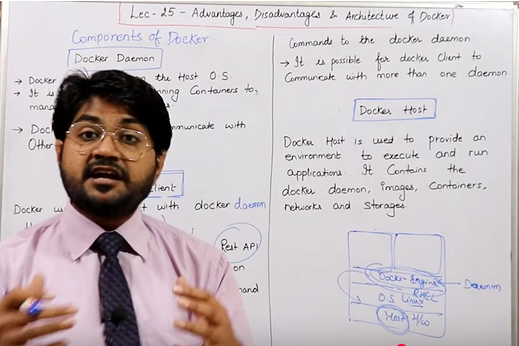 Lec-25 - Advantages, Disadvantages & Architecture of Docker
Components of Docker
Docker Daemon
→ Docker the Host O.S.
→ It is nning Containers to
mana
→ Doc mmunicate with
Other
lient
Docker u t with docker daemon
Rest API
on
mand
Commands to the docker daemon
→ It is possible for docker Client to
Communicate with more than one daemon
Docker Host
Docker Host is used to provide an
environment to execute and run
applications. It Contains the
docker daemon, images, Containers,
networks and storages.
Docker Engine Daemon
RHEL
O.S Linux
Host H/w